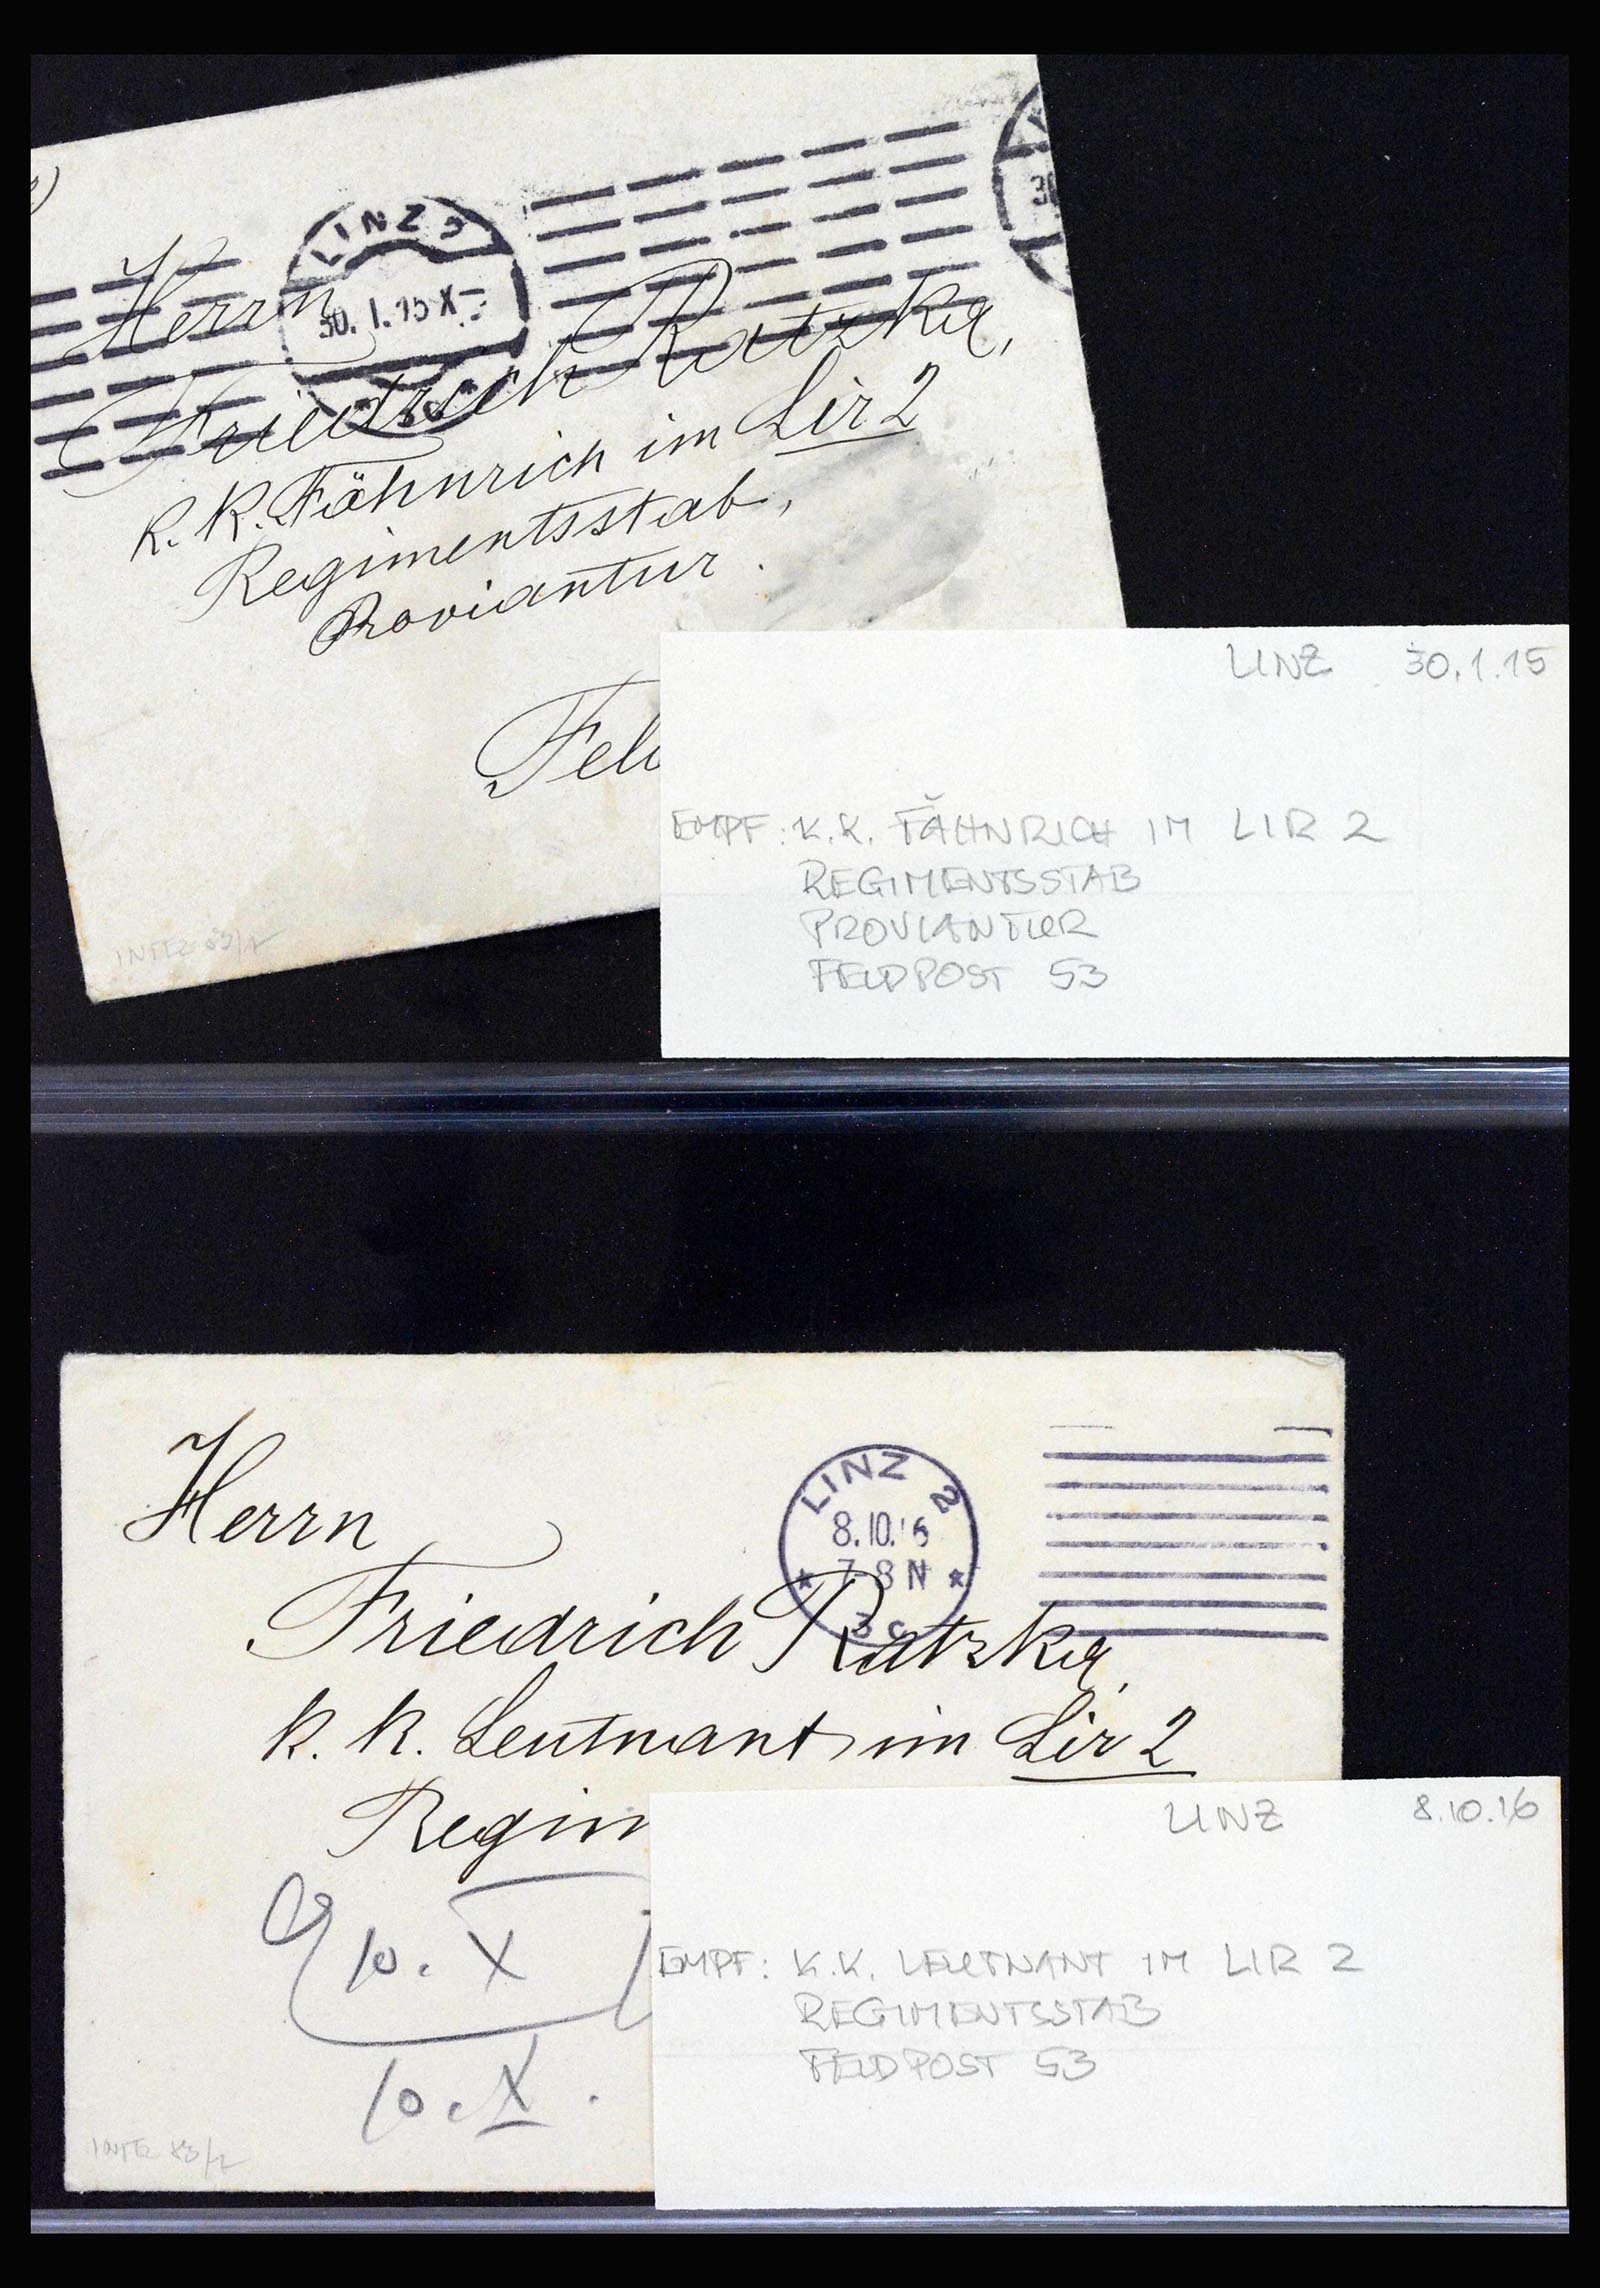 LINZ 2
30.1.15 X
Herrn
Friedrich Ratzka,
k. k. Fähnrich im Lir 2
Regimentsstab,
Proviantur.
Fel
INTER 83/1
LINZ 30.1.15
EMPF: K.K. FÄHNRICH IM LIR 2
REGIMENTSSTAB
PROVIANTUR
FELDPOST 53
LINZ 2
8.10.16
7-8 N
3c
Herrn
Friedrich Ratzka,
k. k. Leutnant im Lir 2
Regim
10. X
10. X.
INTER 83/2
LINZ 8.10.16
EMPF: K.K. LEUTNANT IM LIR 2
REGIMENTSSTAB
FELDPOST 53